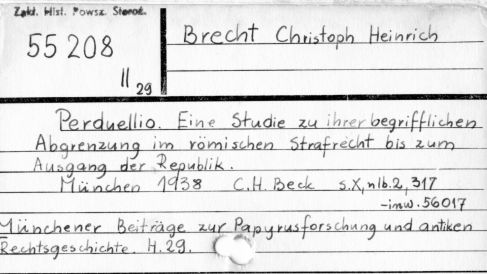 Zakł. Hist. Powsz. Staroż.
55 208
II 29
Brecht Christoph Heinrich
Perduellio. Eine Studie zu ihrer begrifflichen
Abgrenzung im römischen Strafrecht bis zum
Ausgang der Republik.
München 1938 C.H. Beck s.X, nlb.2, 317
-inw. 56017
Münchener Beiträge zur Papyrusforschung und antiken
Rechtsgeschichte. H. 29.